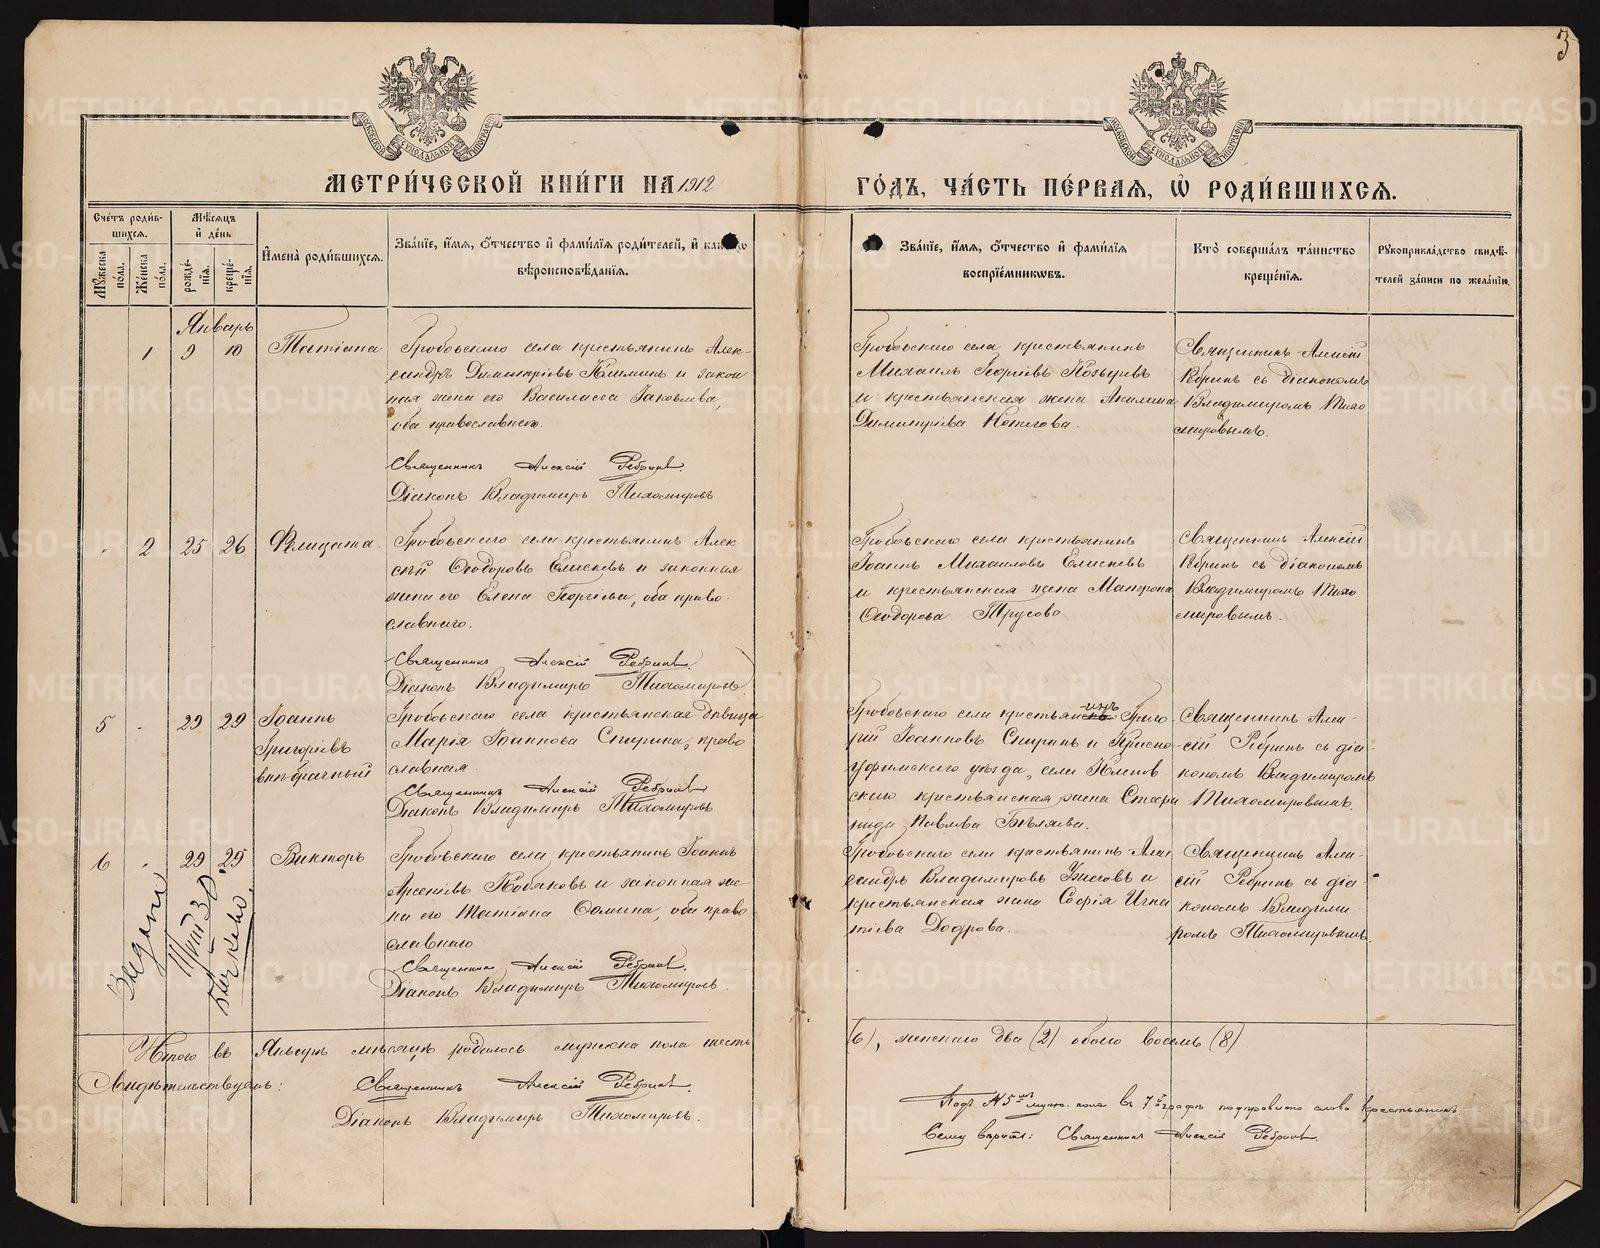 3
МОСКОВСКОЙ СѴНОДАЛЬНОЙ ТИПОГРАФІИ
МОСКОВСКОЙ СѴНОДАЛЬНОЙ ТИПОГРАФІИ
МЕТРИ́ЧЕСКОЙ КНИ́ГИ НА 1912
ГО́ДЪ, ЧА́СТЬ ПЕ́РВАЯ, Ѡ҆ РОДИ́ВШИХСѦ.
Сче́тъ роди́в-
шихсѧ.
Мꙋ́жеска по́ла.
Же́нска по́ла.
Мѣ́сѧцъ
и҆ де́нь
рожде́-нїѧ.
креще́-нїѧ.
И҆мена̀ роди́вшихсѧ.
Зва́нїе, и҆́мѧ, ѻ҆́тчество и҆ фами́лїѧ роди́телей, и҆
вѣроисповѣ́данїѧ.
Зва́нїе, и҆́мѧ, ѻ҆́тчество и҆ фами́лїѧ
воспрїе́мникѡвъ.
Кто̀ соверша́лъ та́инство
креще́нїѧ.
Рꙋкоприкла́дство свидѣ́-
телей за́писи по жела́нїю.
Январь
1 9 10 Татіана
Гробовскаго села крестьянинъ Алек-
сандръ Димитріевъ и закон
ная жена его Василисса Іаковлева,
оба православнаго.
Священникъ Алексій Ребринъ.
Діаконъ Владимиръ Тихомировъ
Гробовскаго села крестьянинъ
Михаилъ Георгіевъ
и крестьянская жена Акилина
Димитріева
Священникъ Алексій
Ребринъ съ діакономъ
Владимиромъ Тихо
мировымъ.
" 2 25 26 Фелицата.
Гробовскаго села крестьянинъ Алек
сѣй Ѳеодоровъ Елисѣевъ и законная
жена его Елена Георгіева, оба право-
славнаго.
Священникъ Алексій Ребринъ.
Діаконъ Владимиръ Тихомировъ.
Гробовскаго села крестьянинъ
Іоаннъ Михаиловъ Елисѣевъ
и крестьянская жена Матрона
Ѳеодорова Трусова
Священникъ Алексій
Ребринъ съ діакономъ
Владимиромъ Тихо
мировымъ.
5 " 29 29 Іоаннъ
Григоріевъ
внѣбрачный
Гробовскаго села крестьянская дѣвица
Марія Іоаннова Спирина, право
славная.
Священникъ Алексій Ребринъ
Діаконъ Владимиръ Тихомировъ
Гробовскаго села крестьянинъ Григо
рій Іоанновъ Спиринъ и Красно
уфимскаго уѣзда, села Кленов
скаго крестьянская жена Стефа
нида Павлова Бѣляева.
Священникъ Але-
ксій Ребринъ съ діа-
кономъ Владимиромъ
Тихомировымъ.
6 " 29 29 Викторъ
Гробовскаго села крестьянинъ Іоаннъ
Арсеніевъ Кобяковъ и законная же-
на его Татіана Ѳомина, оба право
славнаго
Священникъ Алексій Ребринъ.
Діаконъ Владимиръ Тихомировъ.
Гробовскаго села крестьянинъ Але
ксандръ Владимировъ и
крестьянская жена Софія Игна
тіева
Священникъ Але
ксій Ребринъ съ діа-
кономъ Владими
ромъ Тихомировымъ.
Итого въ Январѣ мѣсяцѣ родилось мужеска пола шесть
(6), женскаго два (2) обоего восемь (8)
Свидѣтельствуемъ: Священникъ Алексій Ребринъ.
Діаконъ Владимиръ Тихомировъ.
Подъ № 5 муж. пола въ 7й графѣ подправлено слово крестьянинъ
Сему вѣрить: Священникъ Алексій Ребринъ.
METRIKI.GASO-URAL.RU